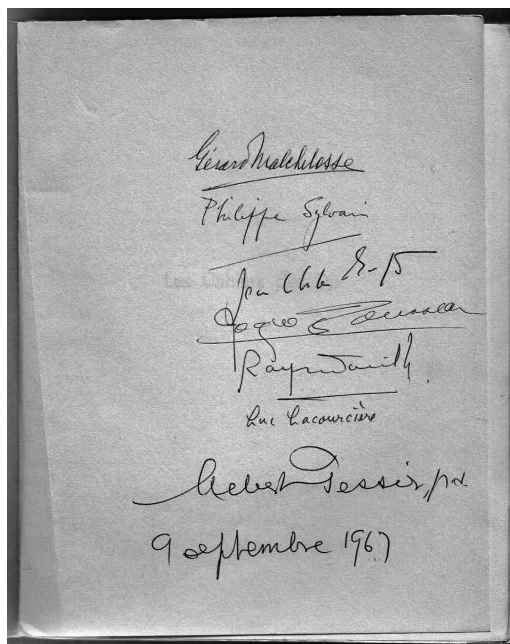 Gérard Malchelosse
Philippe Sylvain
Jacques Rousseau
Raymond Douville
Luc Lacourcière
Albert Tessier, ptre.
9 septembre 1967